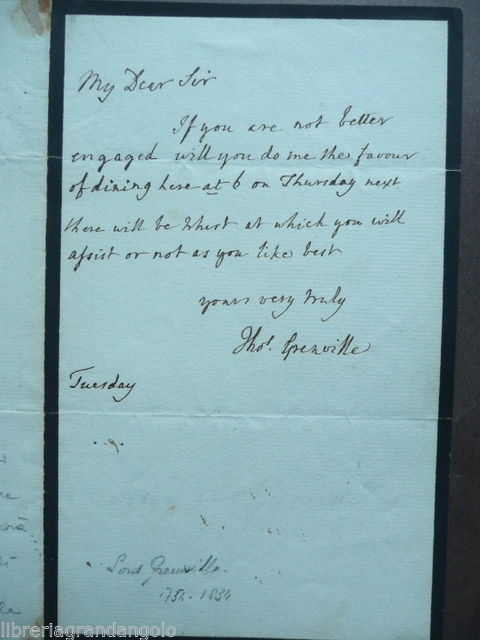 My Dear Sir
If you are not better
engaged will you do me the favour
of dining here at 6 on Thursday next
there will be Whist at which you will
assist or not as you like best
yours very truly
Tho.s Grenville
Tuesday
Lord Grenville.
1754-1834
libreriagrandangolo